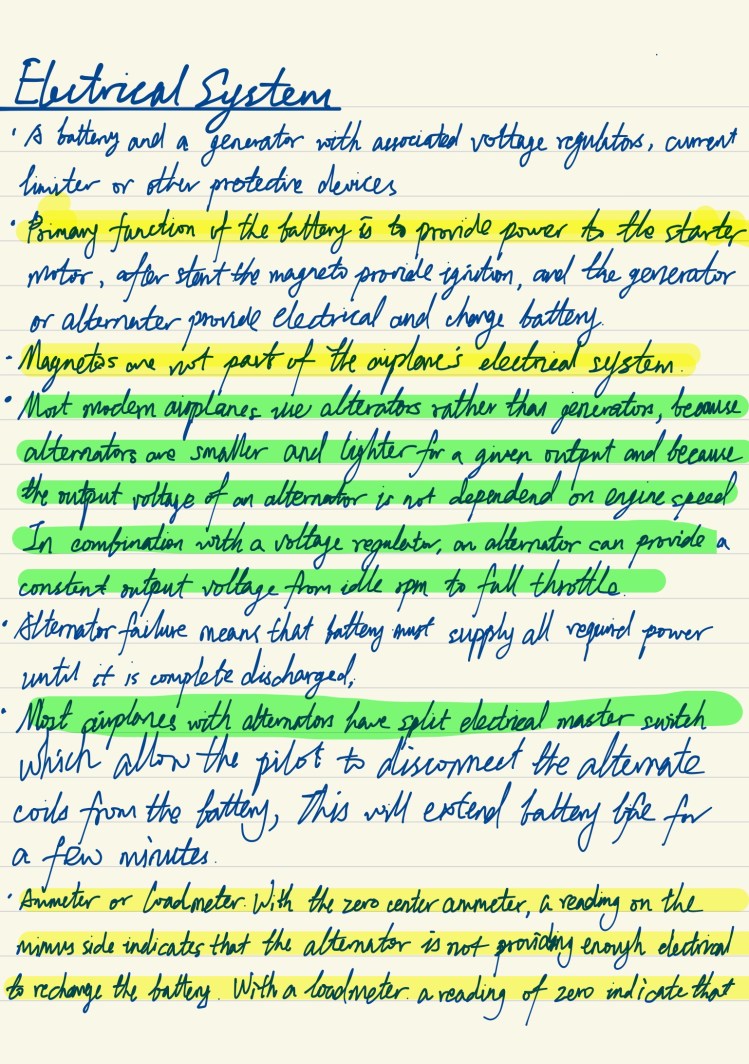 Electrical System
· A battery and a generator with associated voltage regulators, current
limiter or other protective devices
· Primary function of the battery is to provide power to the starter
motor, after start the magneto provide ignition, and the generator
or alternater provide electrical and charge battery.
· Magnetos are not part of the airplane's electrical system.
· Most modern airplanes use alterators rather than generators, because
alternators are smaller and lighter for a given output and because
the output voltage of an alternator is not dependend on engine speed
In combination with a voltage regulator, an alternator can provide a
constent output voltage from idle rpm to full throttle.
· Alternator failure means that battery must supply all required power
until it is complete discharged,
· Most airplanes with alternators have split electrical master switch
which allow the pilot to disconnect the alternate
coils from the battery, This will extend battery life for
a few minutes.
· Ammeter or Loadmeter. With the zero center ammeter, a reading on the
minus side indicates that the alternator is not providing enough electrical
to recharge the battery. With a loadmeter. a reading of zero indicate that